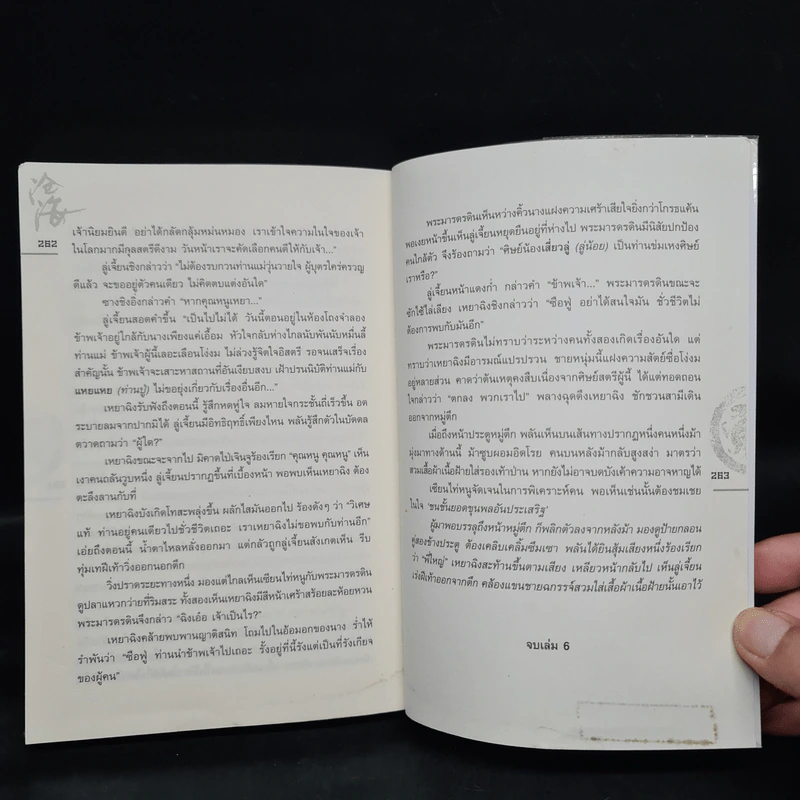 沧海
262
เจ้านิยมยินดี อย่าได้กลัดกลุ้มหม่นหมอง เราเข้าใจความในใจของเจ้า
ในโลกมากมีกุลสตรีดีงาม วันหน้าเราจะคัดเลือกคนดีให้กับเจ้า..."
ลู่เจี้ยนชิงกล่าวว่า "ไม่ต้องรบกวนท่านแม่วุ่นวายใจ ผู้บุตรใคร่ครวญ
ดีแล้ว จะขออยู่ตัวคนเดียว ไม่คิดตบแต่งอันใด"
ซางชิงอิ่งกล่าวคำ "หากคุณหนูเหยา..."
ลู่เจี้ยนสอดคำขึ้น "เป็นไปไม่ได้ วันนี้ตอนอยู่ในห้องโถงจำลอง
ข้าพเจ้าอยู่ใกล้กับนางเพียงแค่เอื้อม หัวใจกลับห่างไกลนับพันนับหมื่นลี้
ท่านแม่ ข้าพเจ้าผู้นี้เลอะเลือนโง่งม ไม่ล่วงรู้จิตใจอิสตรี รอจนเสร็จเรื่อง
สำคัญนั้น ข้าพเจ้าจะเสาะหาสถานที่อันเงียบสงบ เฝ้าปรนนิบัติท่านแม่กับ
แหยแหย (ท่านปู่) ไม่ขอยุ่งเกี่ยวกับเรื่องอื่นอีก..."
เหยาฉิงรับฟังถึงตอนนี้ รู้สึกหดหู่ใจ ลมหายใจกระชั้นถี่เร็วขึ้น อด
ระบายลมจากปากมิได้ ลู่เจี้ยนมีอิทธิฤทธิ์เพียงไหน พลันรู้สึกตัวในบัดดล
ตวาดถามว่า "ผู้ใด?"
เหยาฉิงขณะจะจากไป มิคาดไป๋เจินจูร้องเรียก "คุณหนู คุณหนู" เห็น
เงาคนถลันวูบหนึ่ง ลู่เจี้ยนปรากฏขึ้นที่เบื้องหน้า พอพบเห็นเหยาฉิง ต้อง
ตะลึงลานกับที่
เหยาฉิงบังเกิดโทสะพลุ่งขึ้น ผลักไสมันออกไป ร้องดังๆ ว่า "วิเศษ
แท้ ท่านอยู่คนเดียวไปชั่วชีวิตเถอะ เราเหยาฉิงไม่ขอพบกับท่านอีก"
เอ่ยถึงตอนนี้ น้ำตาไหลหลั่งออกมา แต่กลัวถูกลู่เจี้ยนสังเกตเห็น รีบ
ทุ่มเทฝีเท้าวิ่งออกนอกตึก
วิ่งปราดระยะทางหนึ่ง มองแต่ไกลเห็นเซียนไท่หนูกับพระมารดรดิน
ดูปลาแหวกว่ายที่ริมสระ ทั้งสองเห็นเหยาฉิงมีสีหน้าเศร้าสร้อยละห้อยหวน
พระมารดรดินจึงกล่าว "ฉิงเอ๋อ เจ้าเป็นไร?"
เหยาฉิงคล้ายพบพานญาติสนิท โถมไปในอ้อมอกของนาง ร่ำไห้
รำพันว่า "ซือฟู่ ท่านนำข้าพเจ้าไปเถอะ รั้งอยู่ที่นี้รังแต่เป็นที่รังเกียจ
ของผู้คน"
พระมารดรดินเห็นหว่างคิ้วนางแฝงความเศร้าเสียใจยิ่งกว่าโกรธแค้น
พอเงยหน้าขึ้นเห็นลู่เจี้ยนหยุดยืนอยู่ที่ห่างไป พระมารดรดินมีนิสัยปกป้อง
คนใกล้ตัว จึงร้องถามว่า "ศิษย์น้องเสี่ยวลู่ (ลู่น้อย) เป็นท่านข่มเหงศิษย์
เราหรือ?"
ลู่เจี้ยนหน้าแดงก่ำ กล่าวคำ "ข้าพเจ้า..." พระมารดรดินขณะจะ
ซักไซ้ไล่เลียง เหยาฉิงชิงกล่าวว่า "ซือฟู่ อย่าได้สนใจมัน ชั่วชีวิตไม่
ต้องการพบกับมันอีก"
พระมารดรดินไม่ทราบว่าระหว่างคนทั้งสองเกิดเรื่องอันใด แต่
ทราบว่าเหยาฉิงมีอารมณ์แปรปรวน ชายหนุ่มนี้แฝงความสัตย์ซื่อโง่งม
อยู่หลายส่วน คาดว่าต้นเหตุคงสืบเนื่องจากศิษย์สตรีผู้นี้ ได้แต่ทอดถอน
ใจกล่าวว่า "ตกลง พวกเราไป" พลางฉุดดึงเหยาฉิง ชักชวนสามีเดิน
ออกจากหมู่ตึก
เมื่อถึงหน้าประตูหมู่ตึก พลันเห็นบนเส้นทางปรากฏหนึ่งคนหนึ่งม้า
มุ่งมาทางด้านนี้ ม้าซูบผอมอิดโรย คนบนหลังม้ากลับสูงสง่า มาตรว่า
สวมเสื้อผ้าเนื้อฝ้ายใส่รองเท้าป่าน หากยังไม่อาจบดบังเค้าความอาจหาญได้
เซียนไท่หนูจัดเจนในการพิเคราะห์คน พอเห็นเช่นนั้นต้องชมเชย
ในใจ 'ชนชั้นยอดขุนพลอันประเสริฐ'
ผู้มาพอบรรลุถึงหน้าหมู่ตึก ก็พลิกตัวลงจากหลังม้า มองดูป้ายกลอน
คู่สองข้างประตู ต้องเคลิบเคลิ้มซึมเซา พลันได้ยินสุ้มเสียงหนึ่งร้องเรียก
ว่า "พี่ใหญ่" เหยาฉิงสะท้านขึ้นตามเสียง เหลียวหน้ากลับไป เห็นลู่เจี้ยน
เร่งฝีเท้าออกจากตึก คล้องแขนชายฉกรรจ์สวมใส่เสื้อผ้าเนื้อฝ้ายนั้นเอาไว้
263
จบเล่ม 6